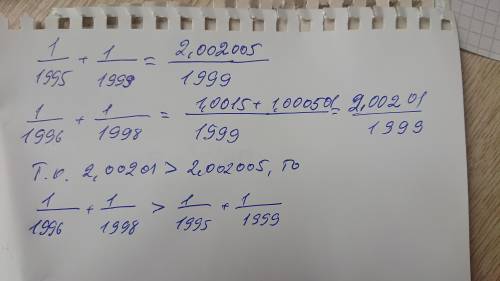 1/1995 + 1/1999 = 2,002005/1999
1/1996 + 1/1998 = 1,0015 + 1,000501/1999 = 2,00201/1999
Т.к. 2,00201 > 2,002005, то
1/1996 + 1/1998 > 1/1995 + 1/1999